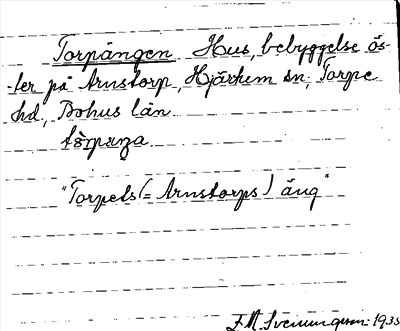 Torpängen Hus, bebyggelse ös-
-ter på Arnstorp, Hjärtum sn, Torpe
hd., Bohus län
"Torpets (= Arnstorps) äng"
1935